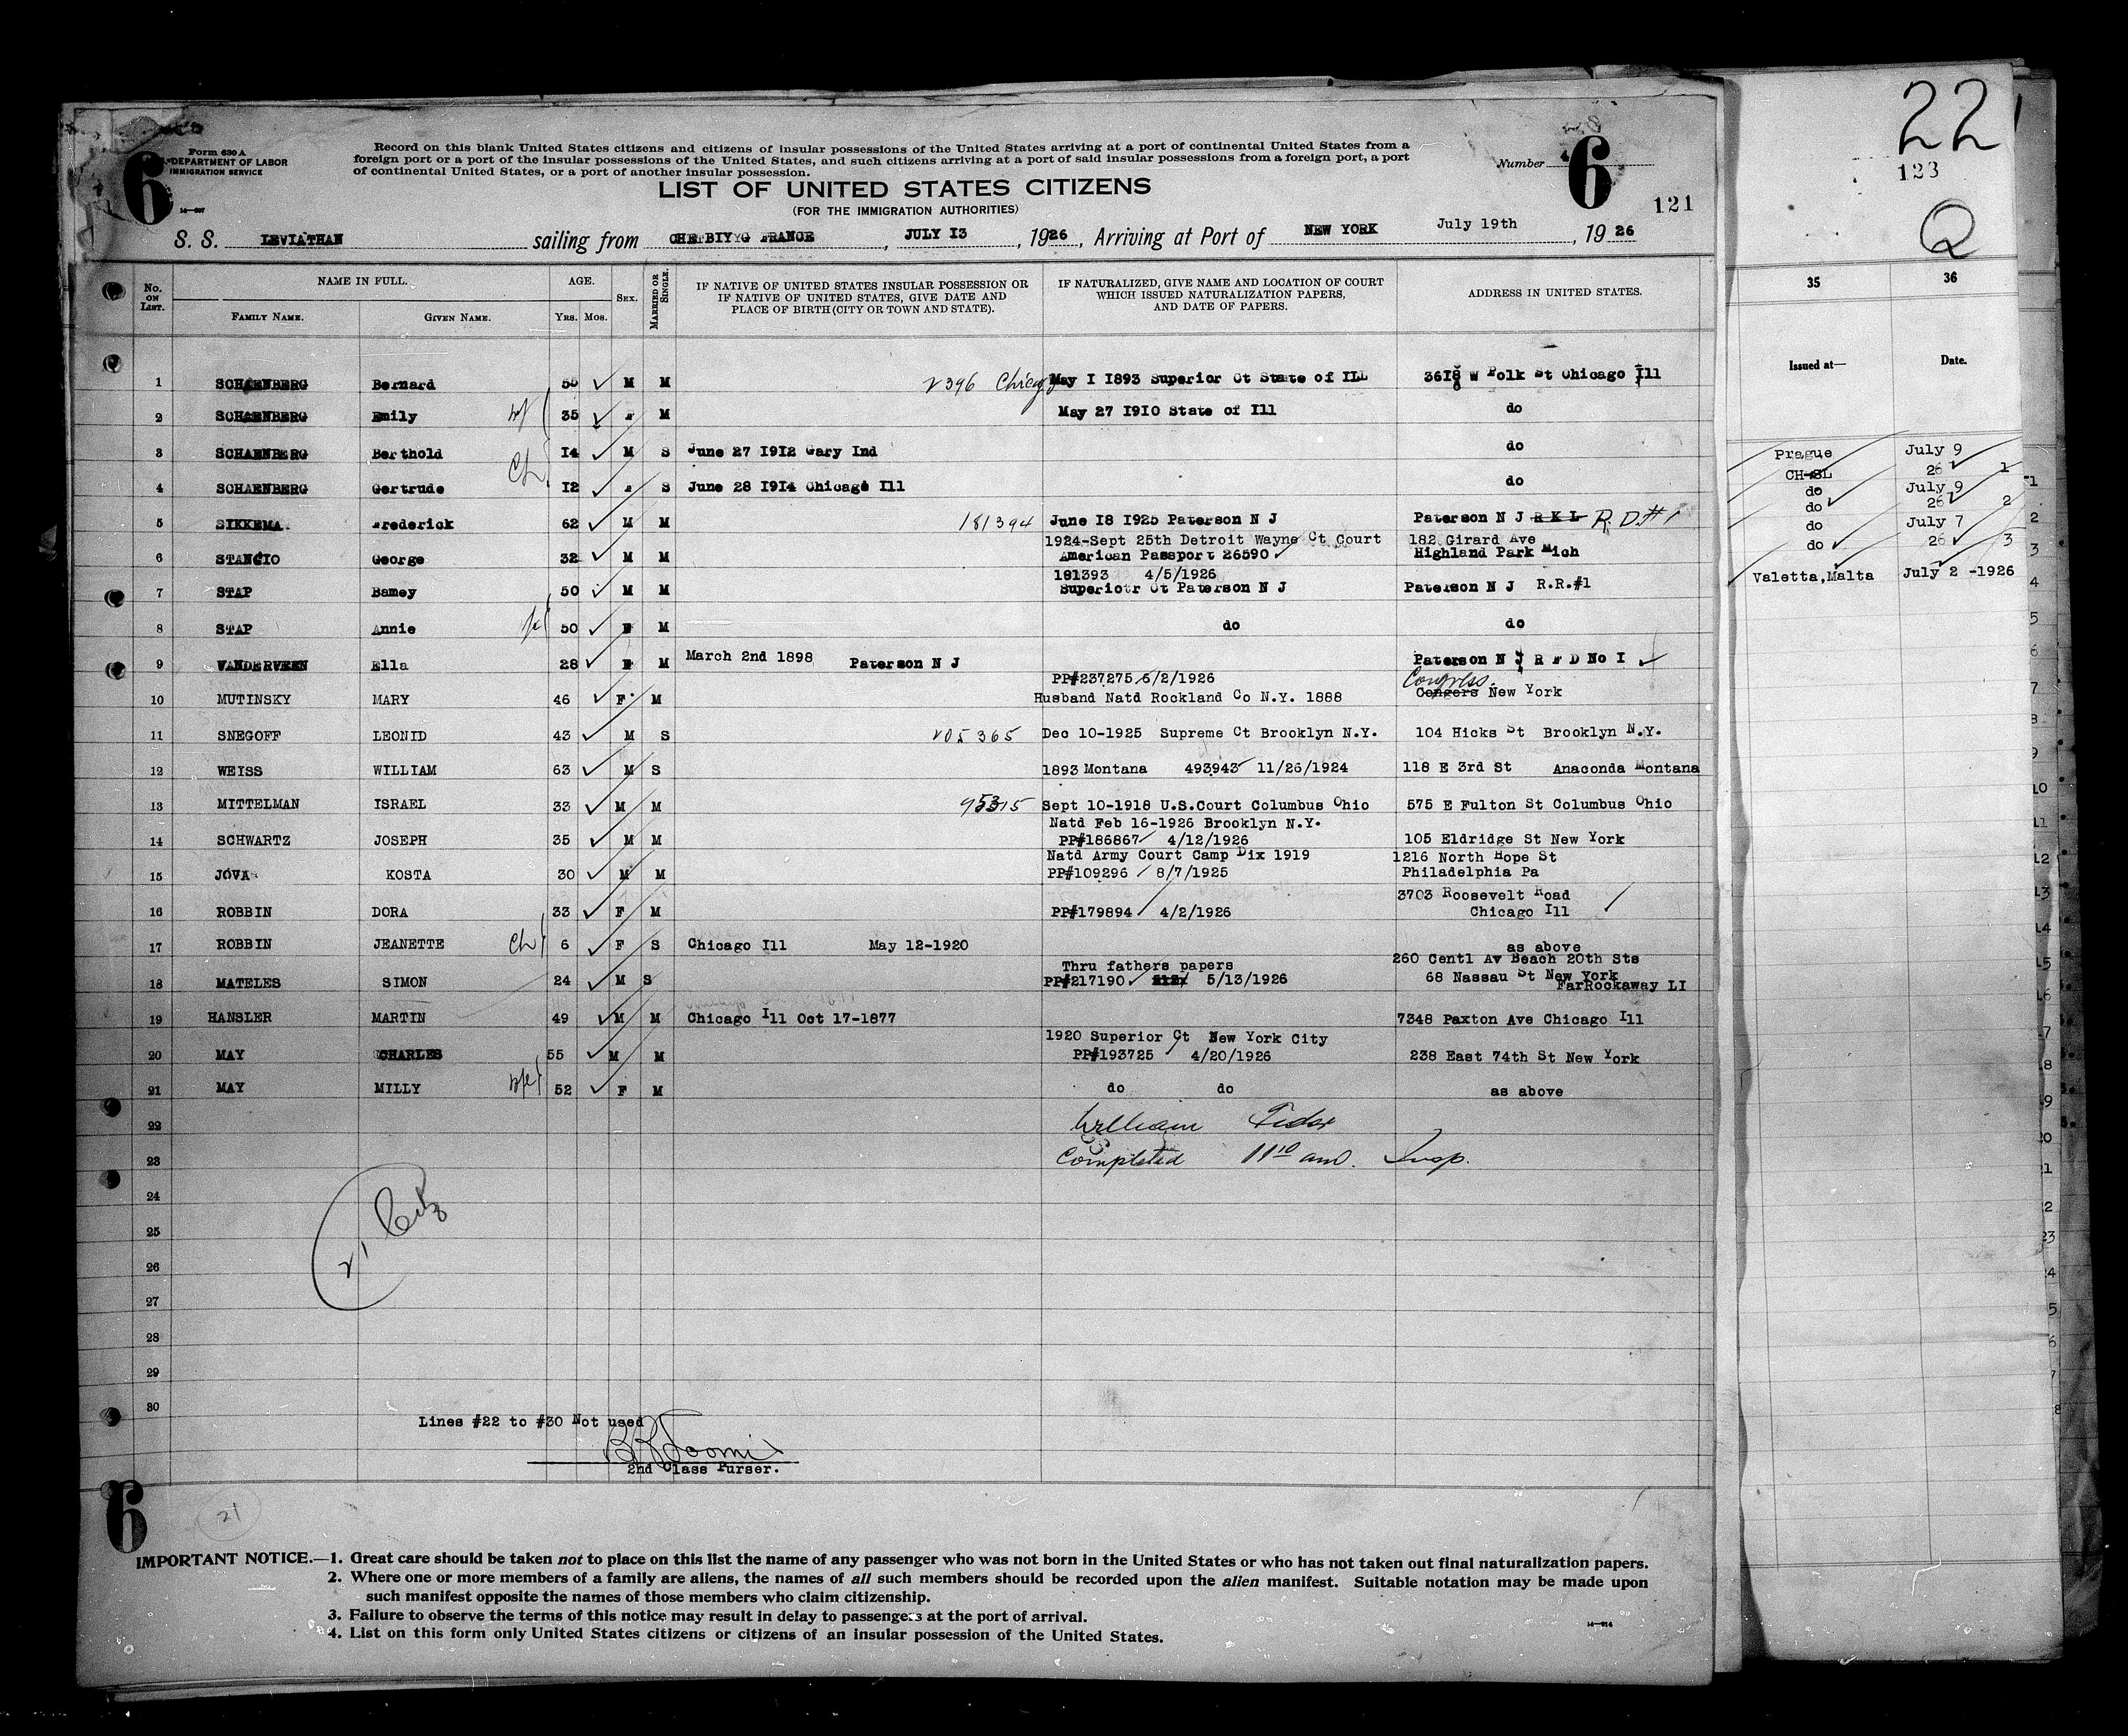 Form 630 A
DEPARTMENT OF LABOR
IMMIGRATION SERVICE
6
14—697
Record on this blank United States citizens and citizens of insular possessions of the United States arriving at a port of continental United States from a
foreign port or a port of the insular possessions of the United States, and such citizens arriving at a port of said insular possessions from a foreign port, a port
of continental United States, or a port of another insular possession.
Number 6
121
LIST OF UNITED STATES CITIZENS
(FOR THE IMMIGRATION AUTHORITIES)
S. S. LEVIATHAN sailing from FRANCE, JULY I3, 1926, Arriving at Port of NEW YORK July 19th, 19 26
No. ON LIST. NAME IN FULL. FAMILY NAME. GIVEN NAME. AGE. YRS. MOS. SEX. MARRIED OR SINGLE. IF NATIVE OF UNITED STATES INSULAR POSSESSION OR IF NATIVE OF UNITED STATES, GIVE DATE AND PLACE OF BIRTH (CITY OR TOWN AND STATE). IF NATURALIZED, GIVE NAME AND LOCATION OF COURT WHICH ISSUED NATURALIZATION PAPERS, AND DATE OF PAPERS. ADDRESS IN UNITED STATES.
1 SCHAENBERG Bernard 50 M M May I I893 Superior Ct State of ILL 36I8 W Polk St Chicago Ill
2 SCHAENBERG Emily 35 M May 27 I9I0 State of Ill do
3 SCHAENBERG Berthold Ch I4 M S June 27 I9I2 Gary Ind do
4 SCHAENBERG Gertrude I2 S June 28 I9I4 Chicago Ill do
5 SIKKEMA Frederick 62 M M 181394 June I8 I925 Paterson N J Paterson N J R.D.#1
1924-Sept 25th Detroit Wayne Ct Court 182 Girard Ave
6 STANCIO George 32 M M American Passport 26590 Highland Park Mich
181393 4/5/1926
7 STAP Bamey 50 M M Superiotr Ct Paterson N J Paterson N J R.R.#1
8 STAP Annie 50 F M do do
9 VANDERVEEN Ella 28 F M March 2nd 1898 Paterson N J Paterson N J R F D No I
PP#237275 6/2/1926 Congress
10 MUTINSKY MARY 46 F M Husband Natd Rockland Co N.Y. 1888 Congers New York
11 SNEGOFF LEONID 43 M S 205365 Dec 10-1925 Supreme Ct Brooklyn N.Y. 104 Hicks St Brooklyn N.Y.
12 WEISS WILLIAM 63 M S 1893 Montana 493943 11/26/1924 118 E 3rd St Anaconda Montana
13 MITTELMAN ISRAEL 33 M M 95315 Sept 10-1918 U.S.Court Columbus Ohio 575 E Fulton St Columbus Ohio
Natd Feb 16-1926 Brooklyn N.Y.
14 SCHWARTZ JOSEPH 35 M M PP#186867 4/12/1926 105 Eldridge St New York
Natd Army Court Camp Dix 1919 1216 North Hope St
15 JOVA KOSTA 30 M M PP#109296 8/7/1925 Philadelphia Pa
3703 Roosevelt Road
16 ROBBIN DORA 33 F M PP#179894 4/2/1926 Chicago Ill
17 ROBBIN JEANETTE Ch 6 F S Chicago Ill May 12-1920 as above
Thru fathers papers 260 Centl Av Beach 20th Sts
18 MATELES SIMON 24 M S PP#217190 5/13/1926 68 Nassau St New York
FarRockaway LI
19 HANSLER MARTIN 49 M M Chicago Ill Oct 17-1877 7348 Paxton Ave Chicago Ill
1920 Superior Ct New York City
20 MAY CHARLES 55 M M PP#193725 4/20/1926 238 East 74th St New York
21 MAY MILLY 52 F M do do as above
22 William
23 Completed 11 10 am. Insp.
24
25
26
27
28
29
30
Lines #22 to #30 Not used
2nd Class Purser.
6
21
IMPORTANT NOTICE.—1. Great care should be taken not to place on this list the name of any passenger who was not born in the United States or who has not taken out final naturalization papers.
2. Where one or more members of a family are aliens, the names of all such members should be recorded upon the alien manifest. Suitable notation may be made upon
such manifest opposite the names of those members who claim citizenship.
3. Failure to observe the terms of this notice may result in delay to passengers at the port of arrival.
4. List on this form only United States citizens or citizens of an insular possession of the United States.
22
123
Q
35 36
Issued at— Date.
Prague July 9
CH-SL 26 1
do July 9
do 26 2
do July 7
do 26 3
Valetta,Malta July 2 -1926